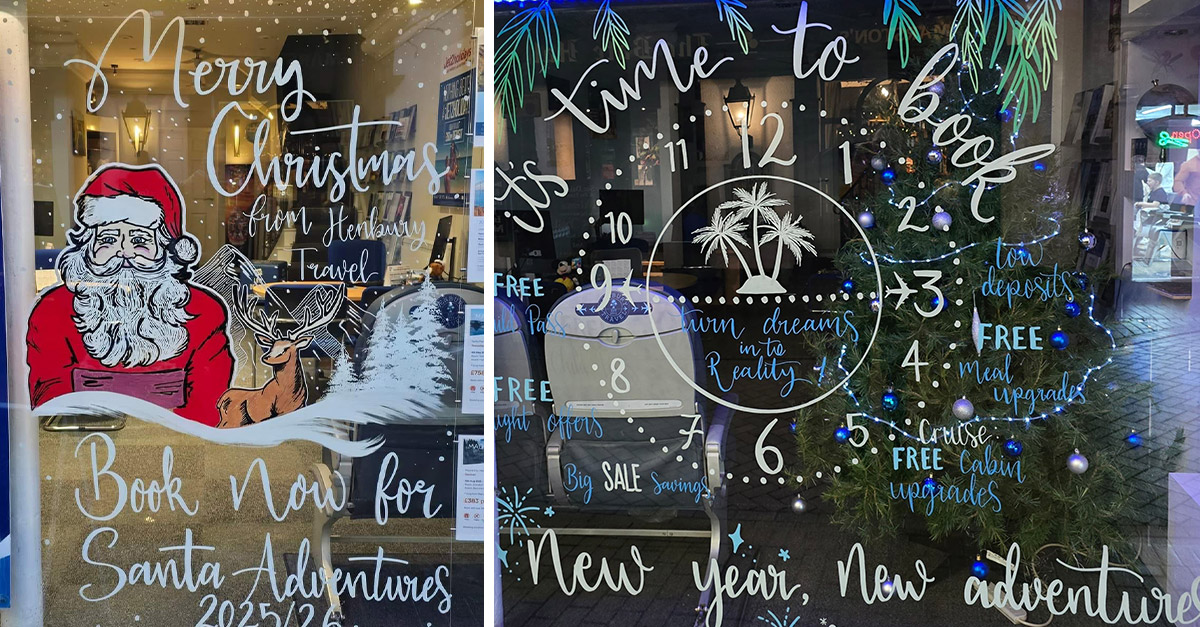 Merry
Christmas
from Henbury
Travel
Book Now for
Santa Adventures
2025/26
it's time to book
12
1
2
3
4
5
6
7
8
9
10
11
turn dreams
in to
Reality!
FREE
Pass
FREE
offers
Big SALE Savings
low
deposits
FREE
meal
upgrades
Cruise
FREE Cabin
upgrades
New year, New adventure